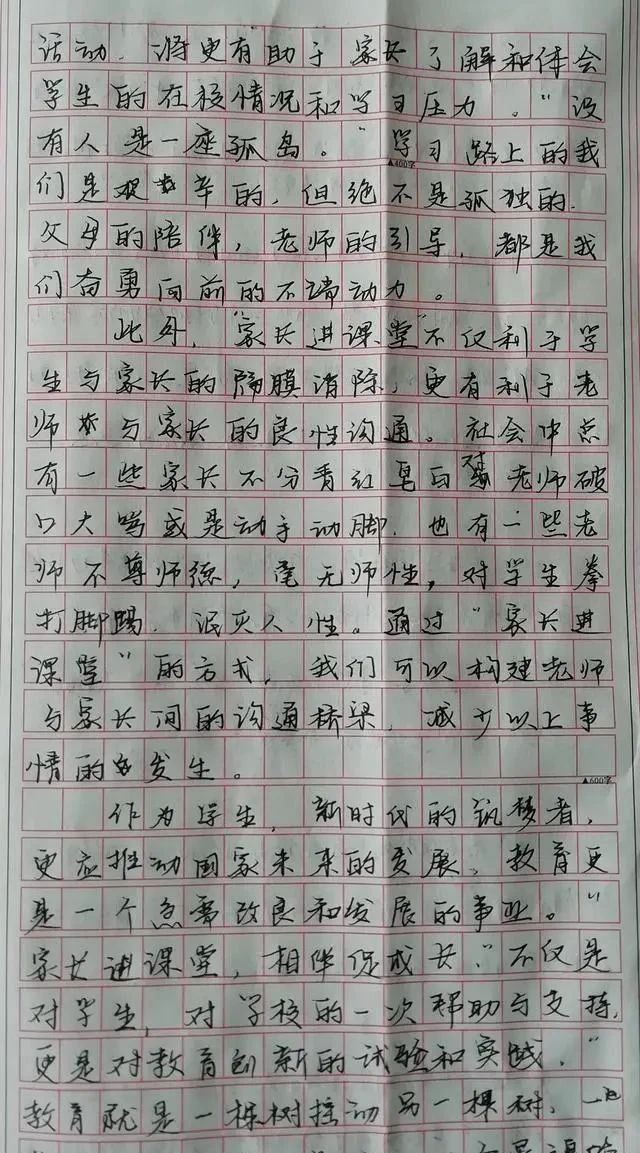 活动，将更有助于家长了解和体会
学生的在校情况和学习压力。“没
有人是一座孤岛。”学习路上的我
▲400字
们是艰辛的，但绝不是孤独的.
父母的陪伴，老师的引导，都是我
们奋勇向前的不竭动力。
此外，“家长进课堂”不仅利于学
生与家长的隔膜消除，更有利于老
师与家长的良性沟通。社会中总
有一些家长不分青红皂白对老师破
口大骂或是动手动脚，也有一些老
师不尊师德，毫无师性，对学生拳
打脚踢，泯灭人性。通过“家长进
课堂”的方式，我们可以构建老师
与家长间的沟通桥梁，减少以上事
情的发生。
▲600字
作为学生，新时代的筑梦者，
更应推动国家未来的发展，教育更
是一个急需改良和发展的事业。“
家长进课堂，相伴促成长”不仅是
对学生，对学校的一次帮助与支持，
更是对教育创新的试验和实践。“
教育就是一棵树摇动另一棵树，一